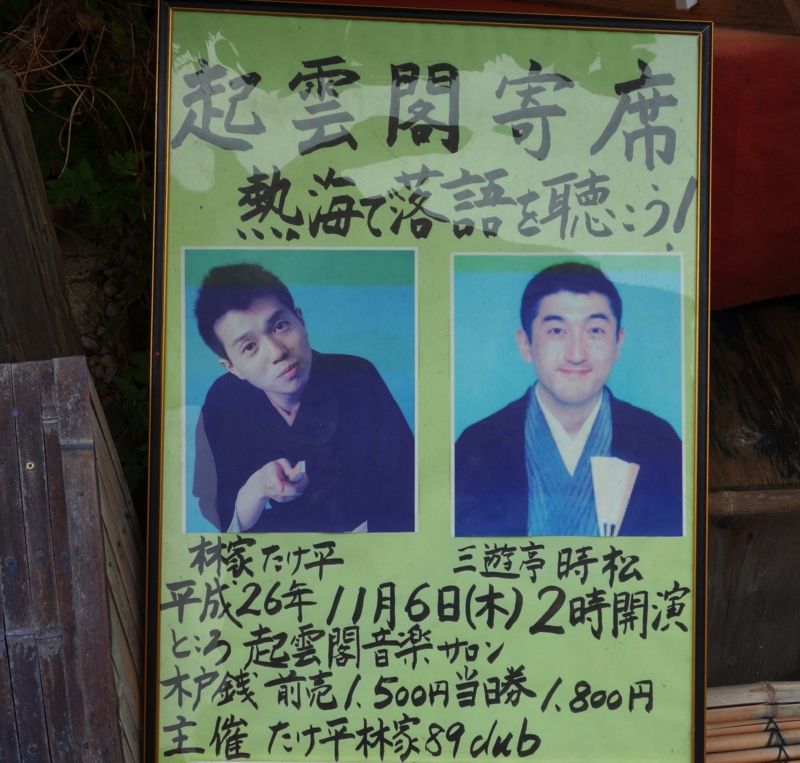 起雲閣寄席
熱海で落語を聴こう!
林家たけ平
三遊亭時松
平成26年11月6日(木)2時開演
ところ 起雲閣音楽サロン
木戸銭 前売1,500円当日券1,800円
主催 たけ平林家89club